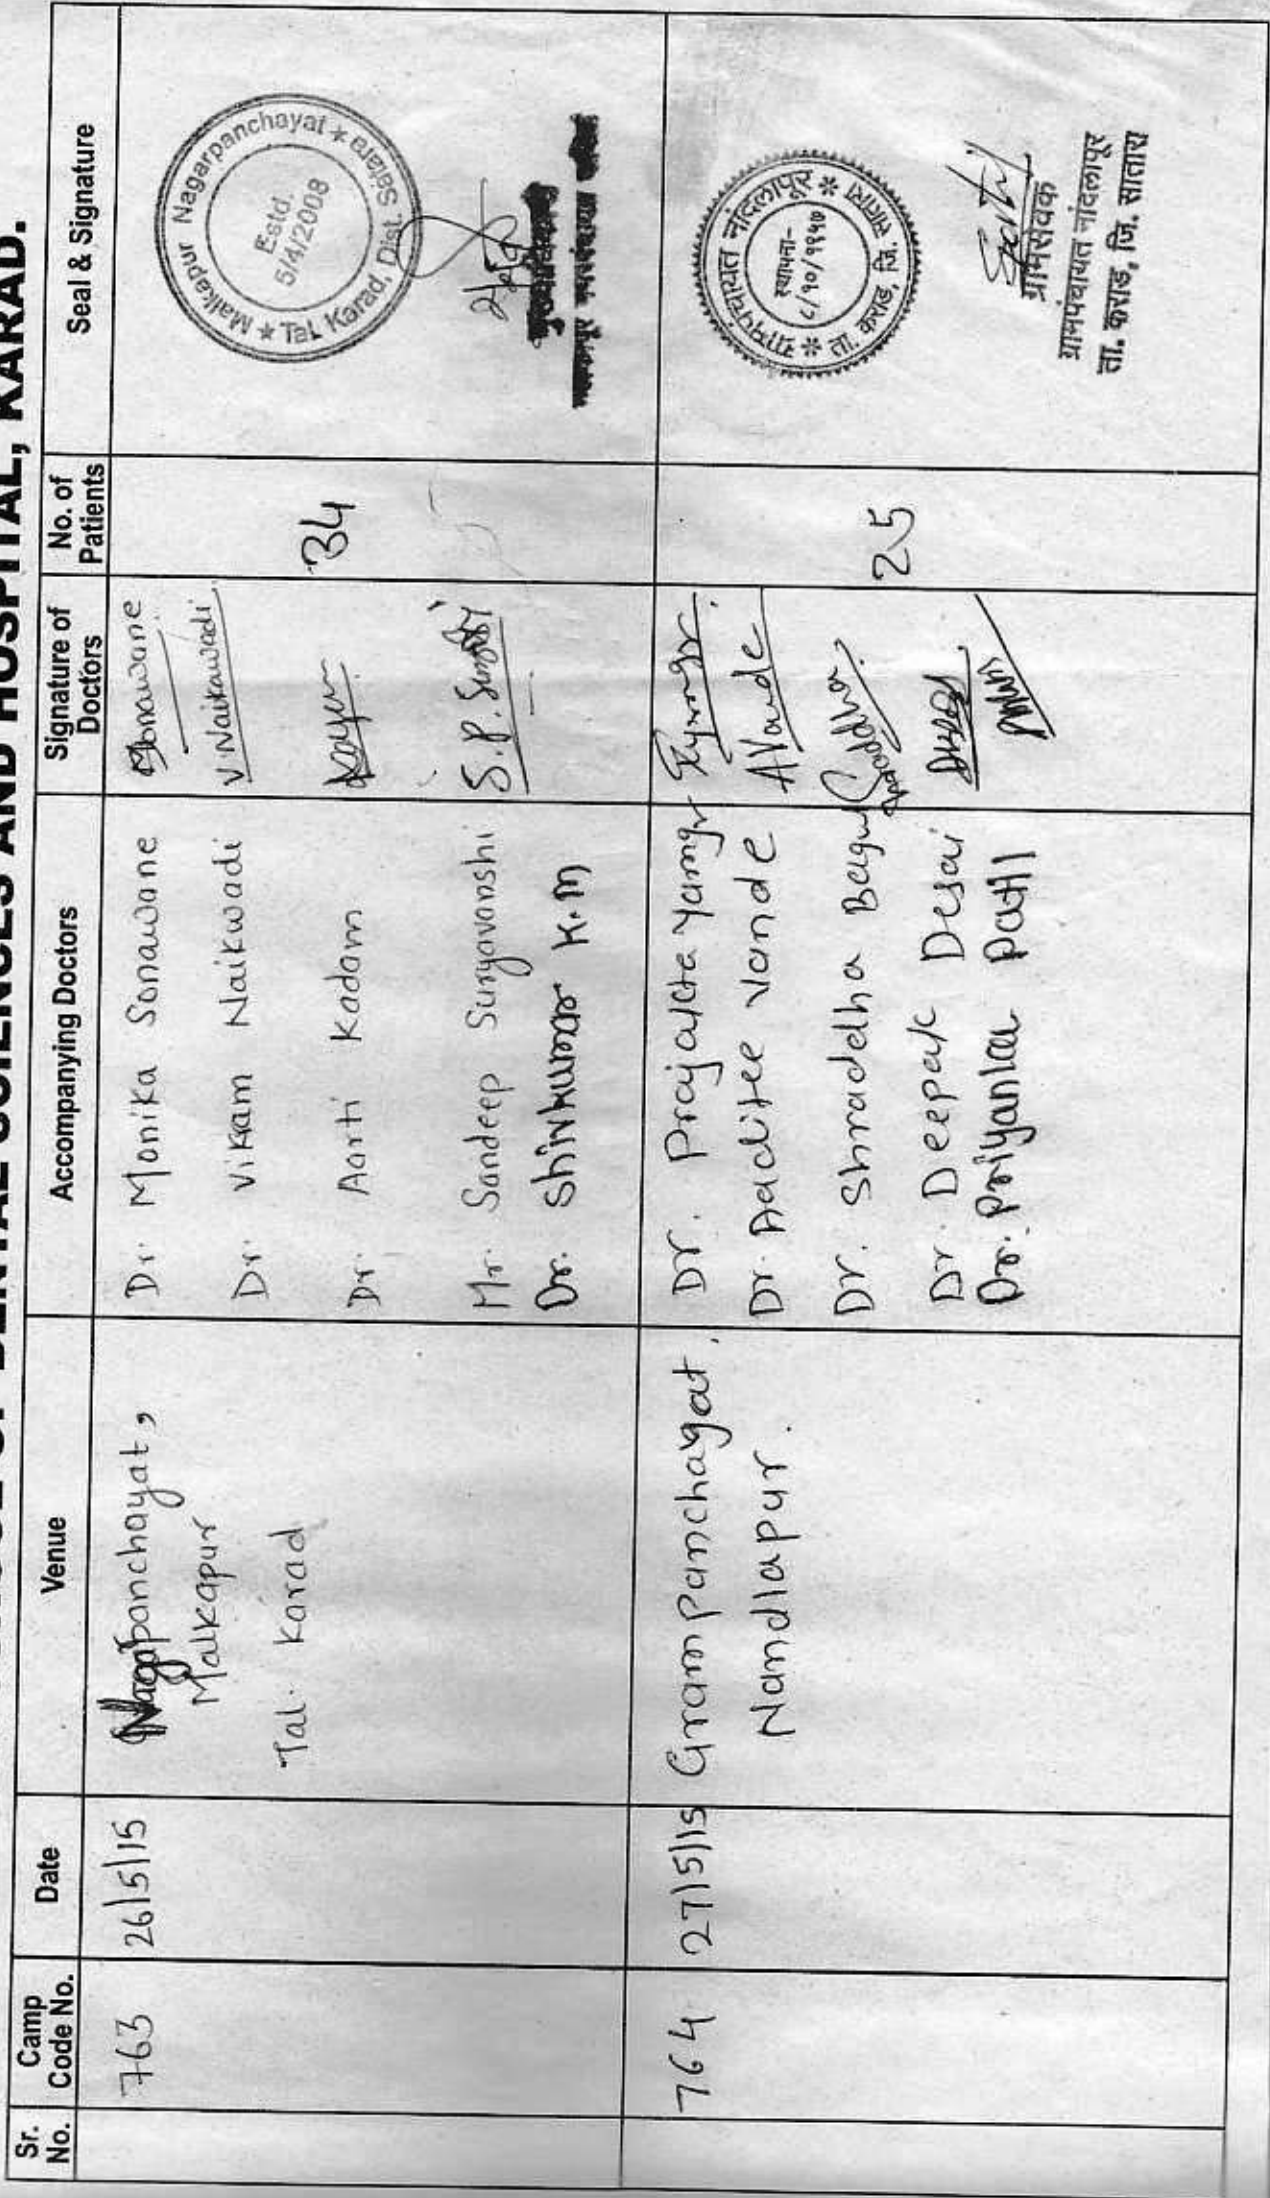 DENTAL SCIENCES AND HOSPITAL, KARAD.
Sr. No.
Camp Code No.
Date
Venue
Accompanying Doctors
Signature of Doctors
No. of Patients
Seal & Signature
763
26/5/15
Nagarpanchayat,
Malkapur
Tal. Karad
Dr. Monika Sonawane
Dr. Vikram Naikwadi
Dr. Aarti Kadam
Mr. Sandeep Suryavanshi
Dr. Shivkumar K.M
Sonawane
V.Naikawadi
34
Malkapur Nagarpanchayat * Tal. Karad, Dist. Satara *
Estd.
5/4/2008
764
27/5/15
Grampanchayat,
Nandlapur.
Dr. Prajakta Yamgr
Dr. Aaditee Vande
Dr. Shraddha Bagul
Dr. Deepak Desai
Dr. Priyanka Patil
AVande
Shraddha
25
ग्रामपंचायत नांदलापूर * ता. कराड, जि. सातारा *
स्थापना-
८/१०/१९५७
ग्रामसेवक
ग्रामपंचायत नांदलापूर
ता. कराड, जि. सातारा